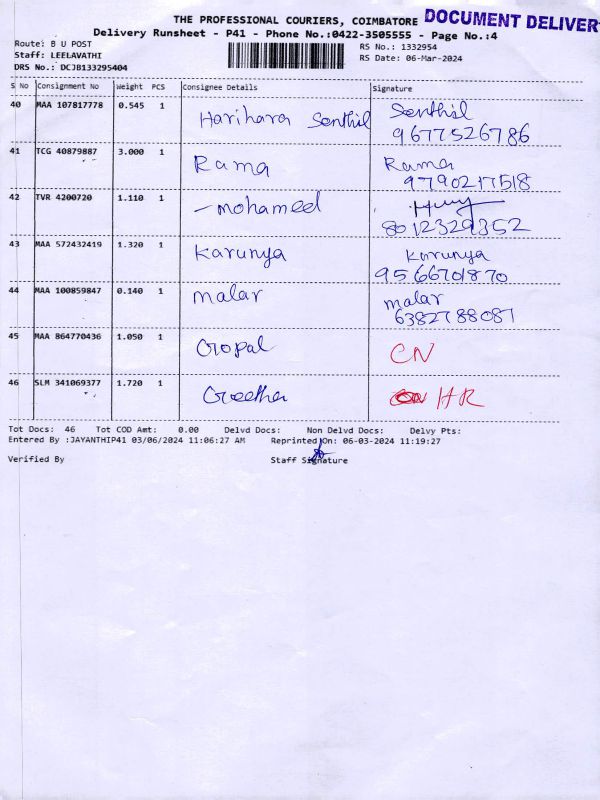 THE PROFESSIONAL COURIERS, COIMBATORE DOCUMENT DELIVER
Delivery Runsheet - P41 - Phone No.:0422-3505555 - Page No.:4
Route: B U POST
Staff: LEELAVATHI
DRS No.: DCJB133295404
RS No.: 1332954
RS Date: 06-Mar-2024
S No Consignment No Weight PCS Consignee Details Signature
40 MAA 107817778 0.545 1 Harihara Senthil Senthil
9677526786
41 TCG 40879887 3.000 1 Rama Rama
9790217518
42 TVR 4200720 1.110 1 mohameed
8012329352
43 MAA 572432419 1.320 1 Karunya Karunya
9566701870
44 MAA 100859847 0.140 1 malar malar
6382788087
45 MAA 864770436 1.050 1 Gopal CN
46 SLM 341069377 1.720 1 Geetha HR
Tot Docs: 46 Tot COD Amt: 0.00 Delvd Docs: Non Delvd Docs: Delvy Pts:
Entered By :JAYANTHIP41 03/06/2024 11:06:27 AM Reprinted On: 06-03-2024 11:19:27
Verified By Staff Signature